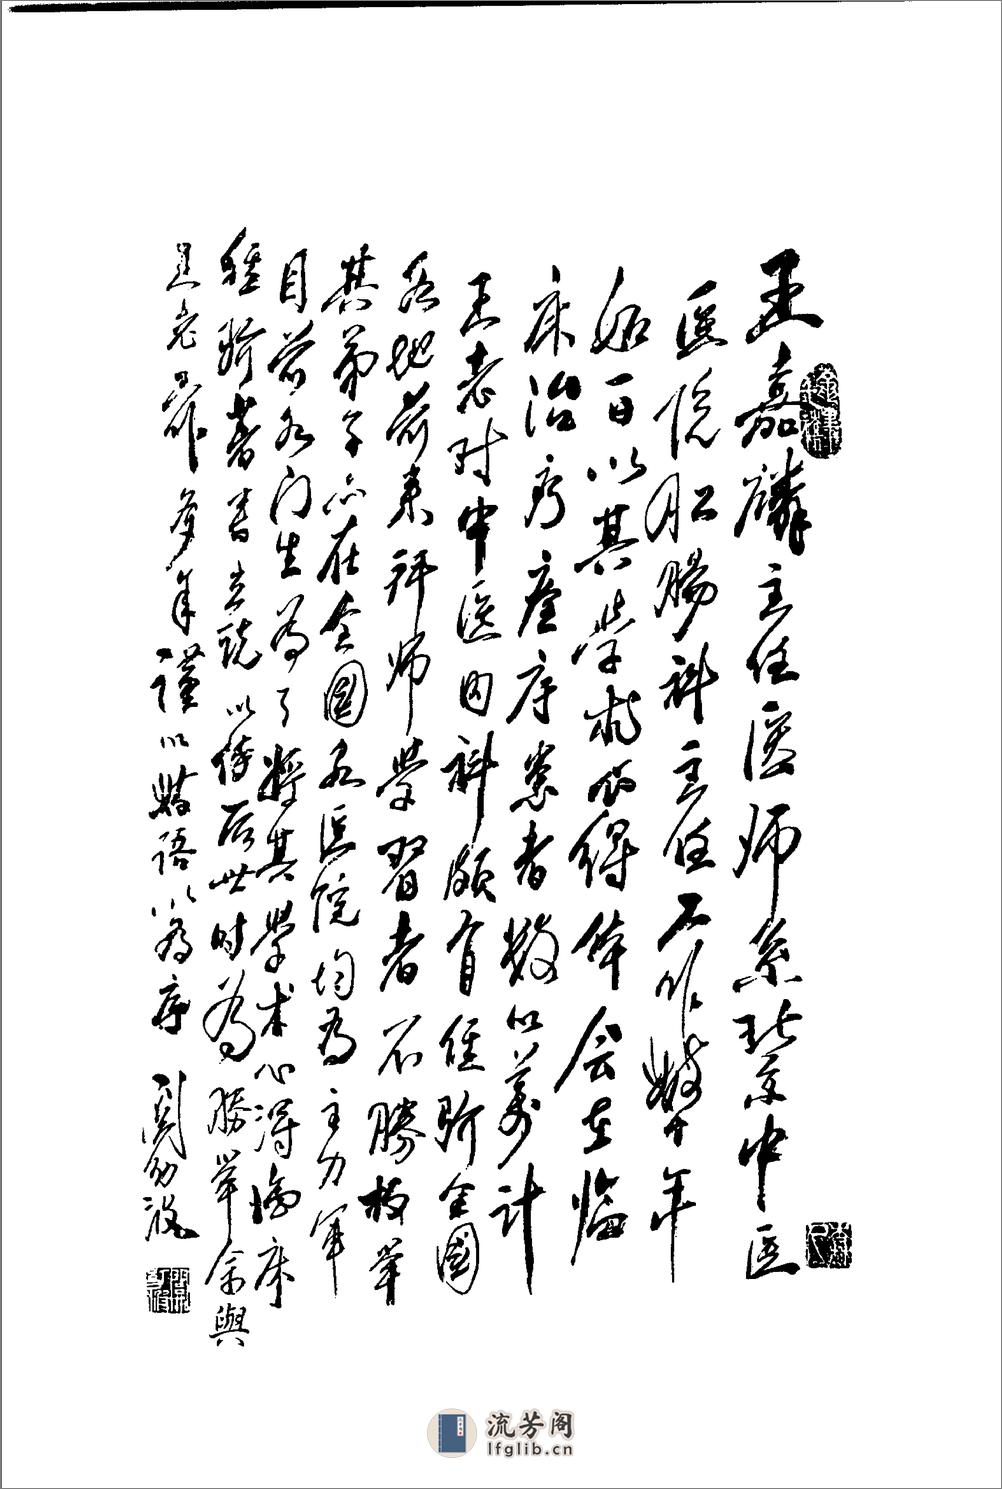 王嘉麟主任医师系北京中医
医院肛肠科主任工作数十年
如一日以其学术心得体会在临
床治疗痊愈患者数以万计
王老对中医内科颇有经验全国
各地前来拜师学習者不勝枚举
其弟子亦在全國各医院均为主力军
目前各门生为了将其學术心得临床
经验著書立說以传后世时为勝举余與
王老 多年謹以数语以为序
关幼波
流芳阁
lfglib.cn